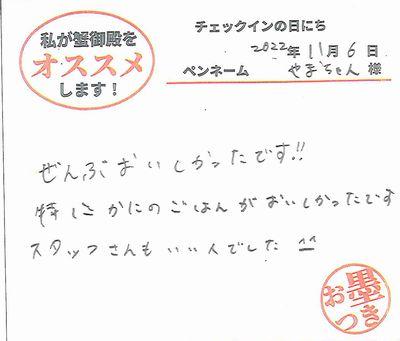 私が蟹御殿を
オススメ
します！
チェックインの日にち
2022年11月6日
ペンネーム やまちゃん 様
ぜんぶおいしかったです!!
特にかにのごはんがおいしかったです
スタッフさんもいい人でした ^^
お墨つき